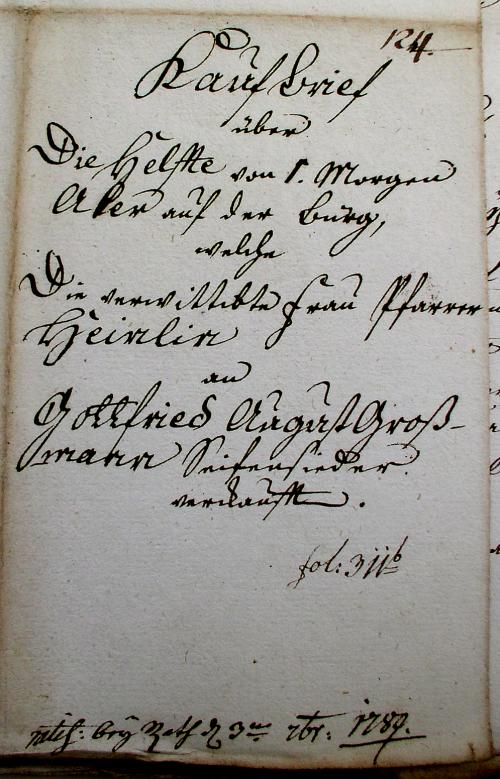 124.
Kaufbrief
über
Die Helfte von 1. Morgen
Aker auf der Bürg,
welche
Die verwittibte Frau Pfarrer
Heinlin
an
Gottfried August Groß-
mann Seifensieder
verkaufft.
fol: 311b
bey Rath d 3 br: 1789.